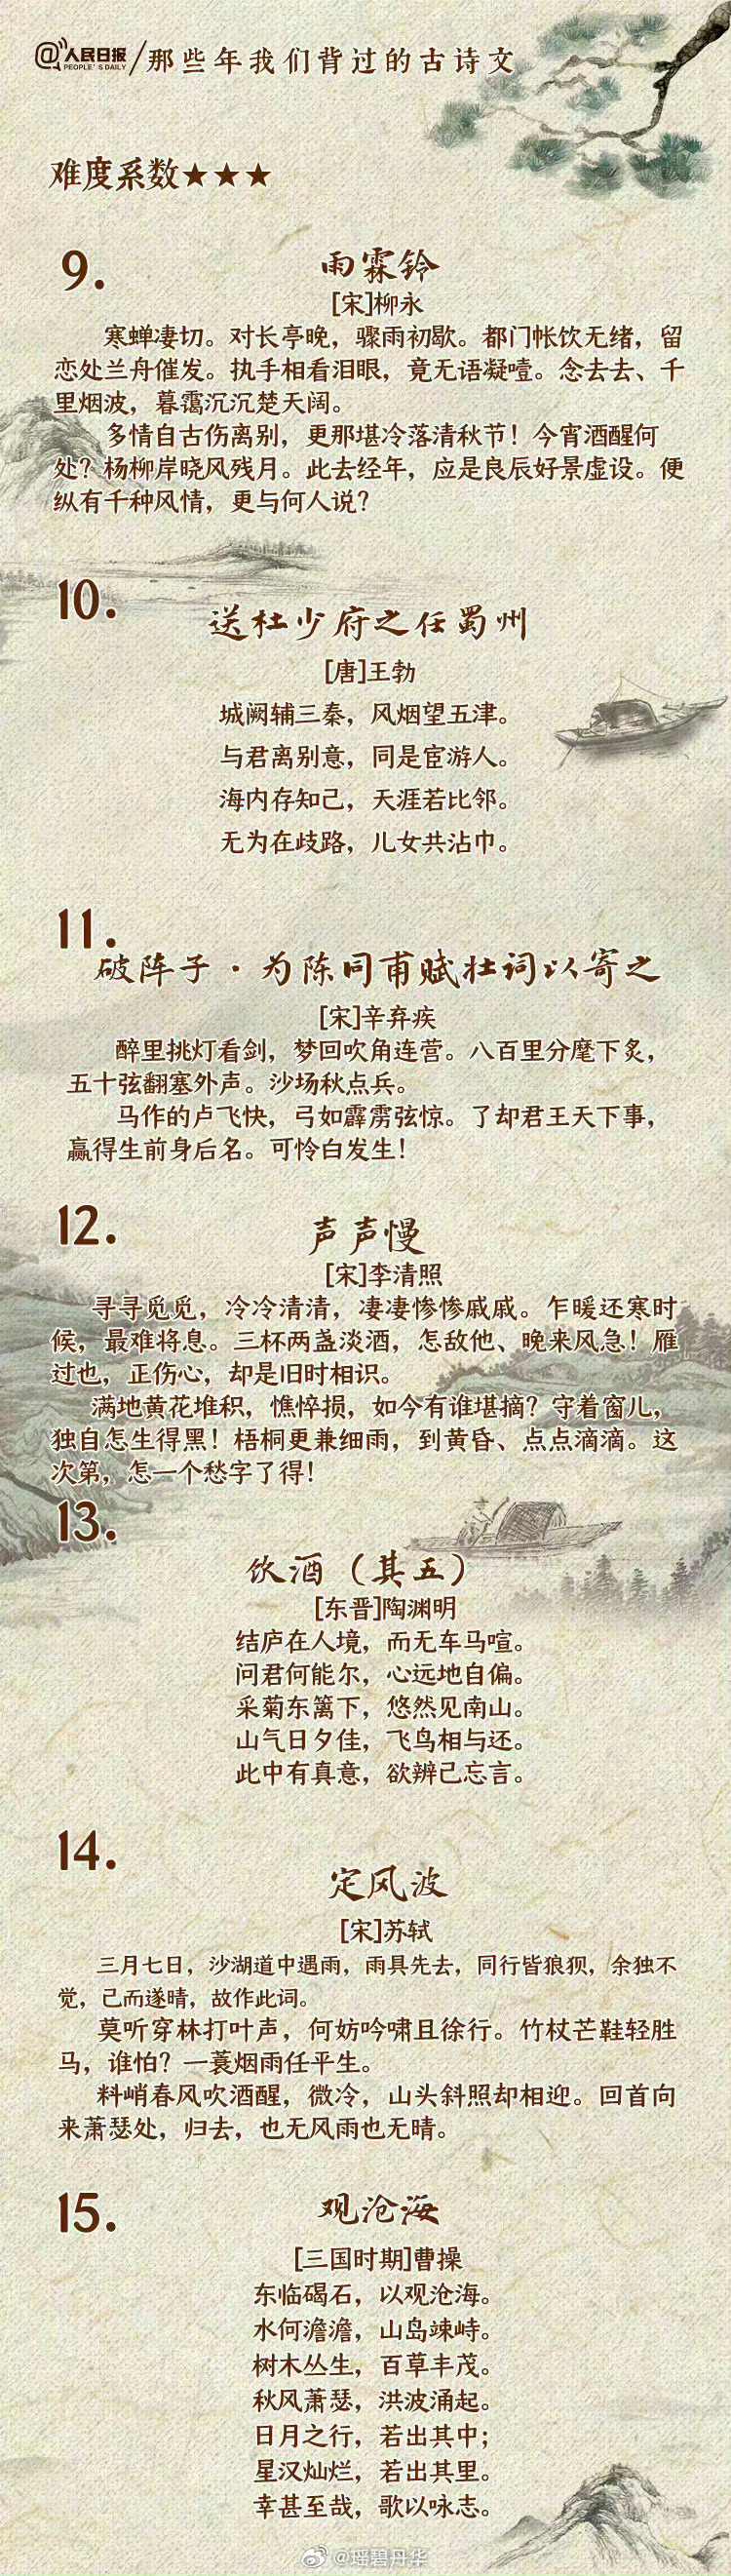 @人民日报 PEOPLE'S DAILY / 那些年我们背过的古诗文
难度系数★★★
9.
雨霖铃
[宋]柳永
寒蝉凄切。对长亭晚，骤雨初歇。都门帐饮无绪，留
恋处兰舟催发。执手相看泪眼，竟无语凝噎。念去去、千
里烟波，暮霭沉沉楚天阔。
多情自古伤离别，更那堪冷落清秋节！今宵酒醒何
处？杨柳岸晓风残月。此去经年，应是良辰好景虚设。便
纵有千种风情，更与何人说？
10.
送杜少府之任蜀州
[唐]王勃
城阙辅三秦，风烟望五津。
与君离别意，同是宦游人。
海内存知己，天涯若比邻。
无为在歧路，儿女共沾巾。
11.
破阵子·为陈同甫赋壮词以寄之
[宋]辛弃疾
醉里挑灯看剑，梦回吹角连营。八百里分麾下炙，
五十弦翻塞外声。沙场秋点兵。
马作的卢飞快，弓如霹雳弦惊。了却君王天下事，
赢得生前身后名。可怜白发生！
12.
声声慢
[宋]李清照
寻寻觅觅，冷冷清清，凄凄惨惨戚戚。乍暖还寒时
候，最难将息。三杯两盏淡酒，怎敌他、晚来风急！雁
过也，正伤心，却是旧时相识。
满地黄花堆积，憔悴损，如今有谁堪摘？守着窗儿，
独自怎生得黑！梧桐更兼细雨，到黄昏、点点滴滴。这
次第，怎一个愁字了得！
13.
饮酒（其五）
[东晋]陶渊明
结庐在人境，而无车马喧。
问君何能尔，心远地自偏。
采菊东篱下，悠然见南山。
山气日夕佳，飞鸟相与还。
此中有真意，欲辨已忘言。
14.
定风波
[宋]苏轼
三月七日，沙湖道中遇雨，雨具先去，同行皆狼狈，余独不
觉，已而遂晴，故作此词。
莫听穿林打叶声，何妨吟啸且徐行。竹杖芒鞋轻胜
马，谁怕？一蓑烟雨任平生。
料峭春风吹酒醒，微冷，山头斜照却相迎。回首向
来萧瑟处，归去，也无风雨也无晴。
15.
观沧海
[三国时期]曹操
东临碣石，以观沧海。
水何澹澹，山岛竦峙。
树木丛生，百草丰茂。
秋风萧瑟，洪波涌起。
日月之行，若出其中；
星汉灿烂，若出其里。
幸甚至哉，歌以咏志。
@瑶碧丹华